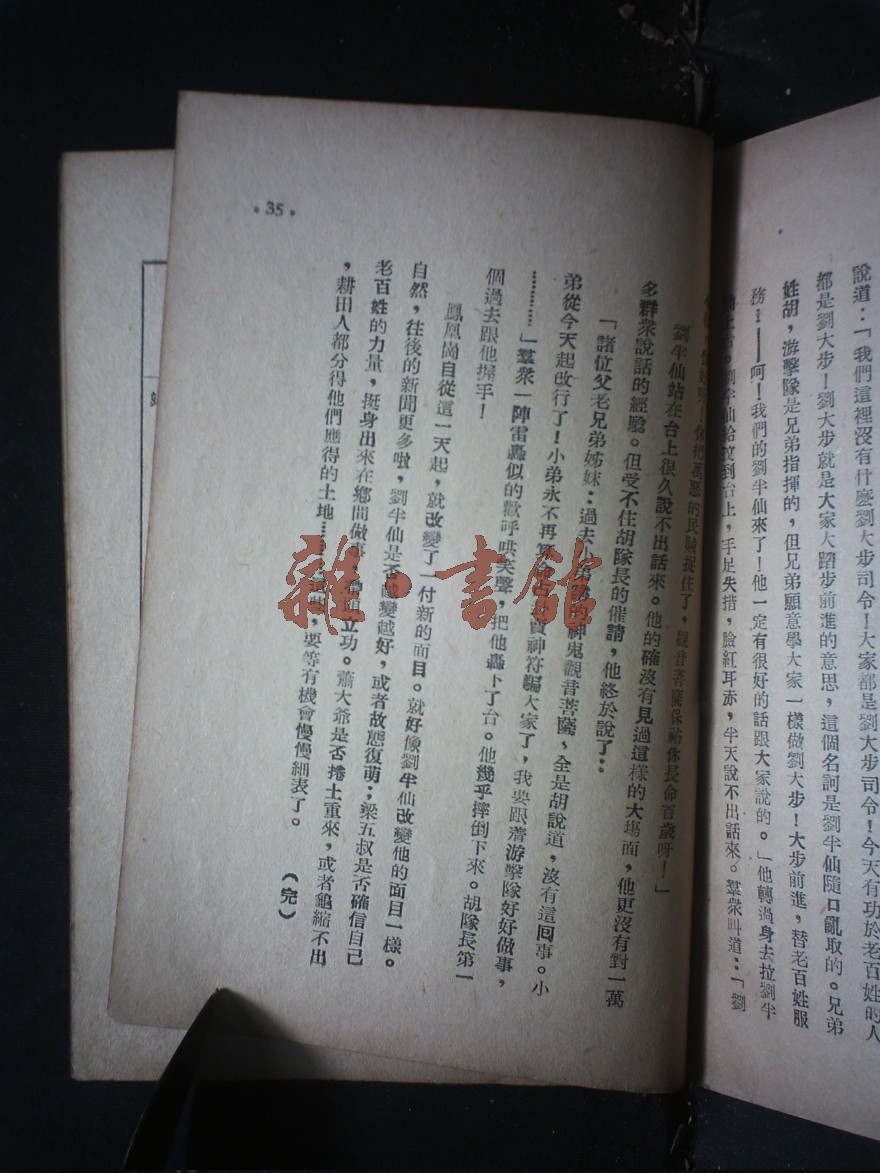 說道：「我們這裡沒有什麽劉大步司令！大家都是劉大步司令！今天有功於老百姓的人
都是劉大步！劉大步就是大家大踏步前進的意思，這個名詞是劉半仙隨口亂取的。兄弟
姓胡，游擊隊是兄弟指揮的，但兄弟願意學大家一樣做劉大步！大步前進，替老百姓服
務！——呵！我們的劉半仙來了！他一定有很好的話跟大家說的。」他轉過身去拉劉半
仙上台。劉半仙給拉到台上，手足失措，臉紅耳赤，半天說不出話來。羣衆叫道：「劉
你把萬惡的民賊捉住了，觀音菩薩保祐你長命百歲呀！」
劉半仙站在台上很久說不出話來。他的確沒有見過這樣的大塲面，他更沒有對一萬
多群衆說話的經驗。但受不住胡隊長的催請，他終於說了：
「諸位父老兄弟姊妹：過去小弟的神鬼觀音菩薩，全是胡說道，沒有這回事。小
弟從今天起改行了！小弟永不再算命占卦賣神符騙大家了，我要跟着游擊隊好好做事，
…………」羣衆一陣雷轟似的歡呼哄笑聲，把他轟下了台。他幾乎摔倒下來。胡隊長第一
個過去跟他握手！
鳳凰崗自從這一天起，就改變了一付新的面目。就好像劉半仙改變他的面目一樣。
自然，往後的新聞更多啦，劉半仙是否越變越好，或者故態復萌；梁五叔是否確信自己
老百姓的力量，挺身出來在鄉間做事，立功。蕭大爺是否捲土重來，或者龜縮不出
，耕田人都分得他們應得的土地……，要等有機會慢慢細表了。
（完）
•35•
雜·書館